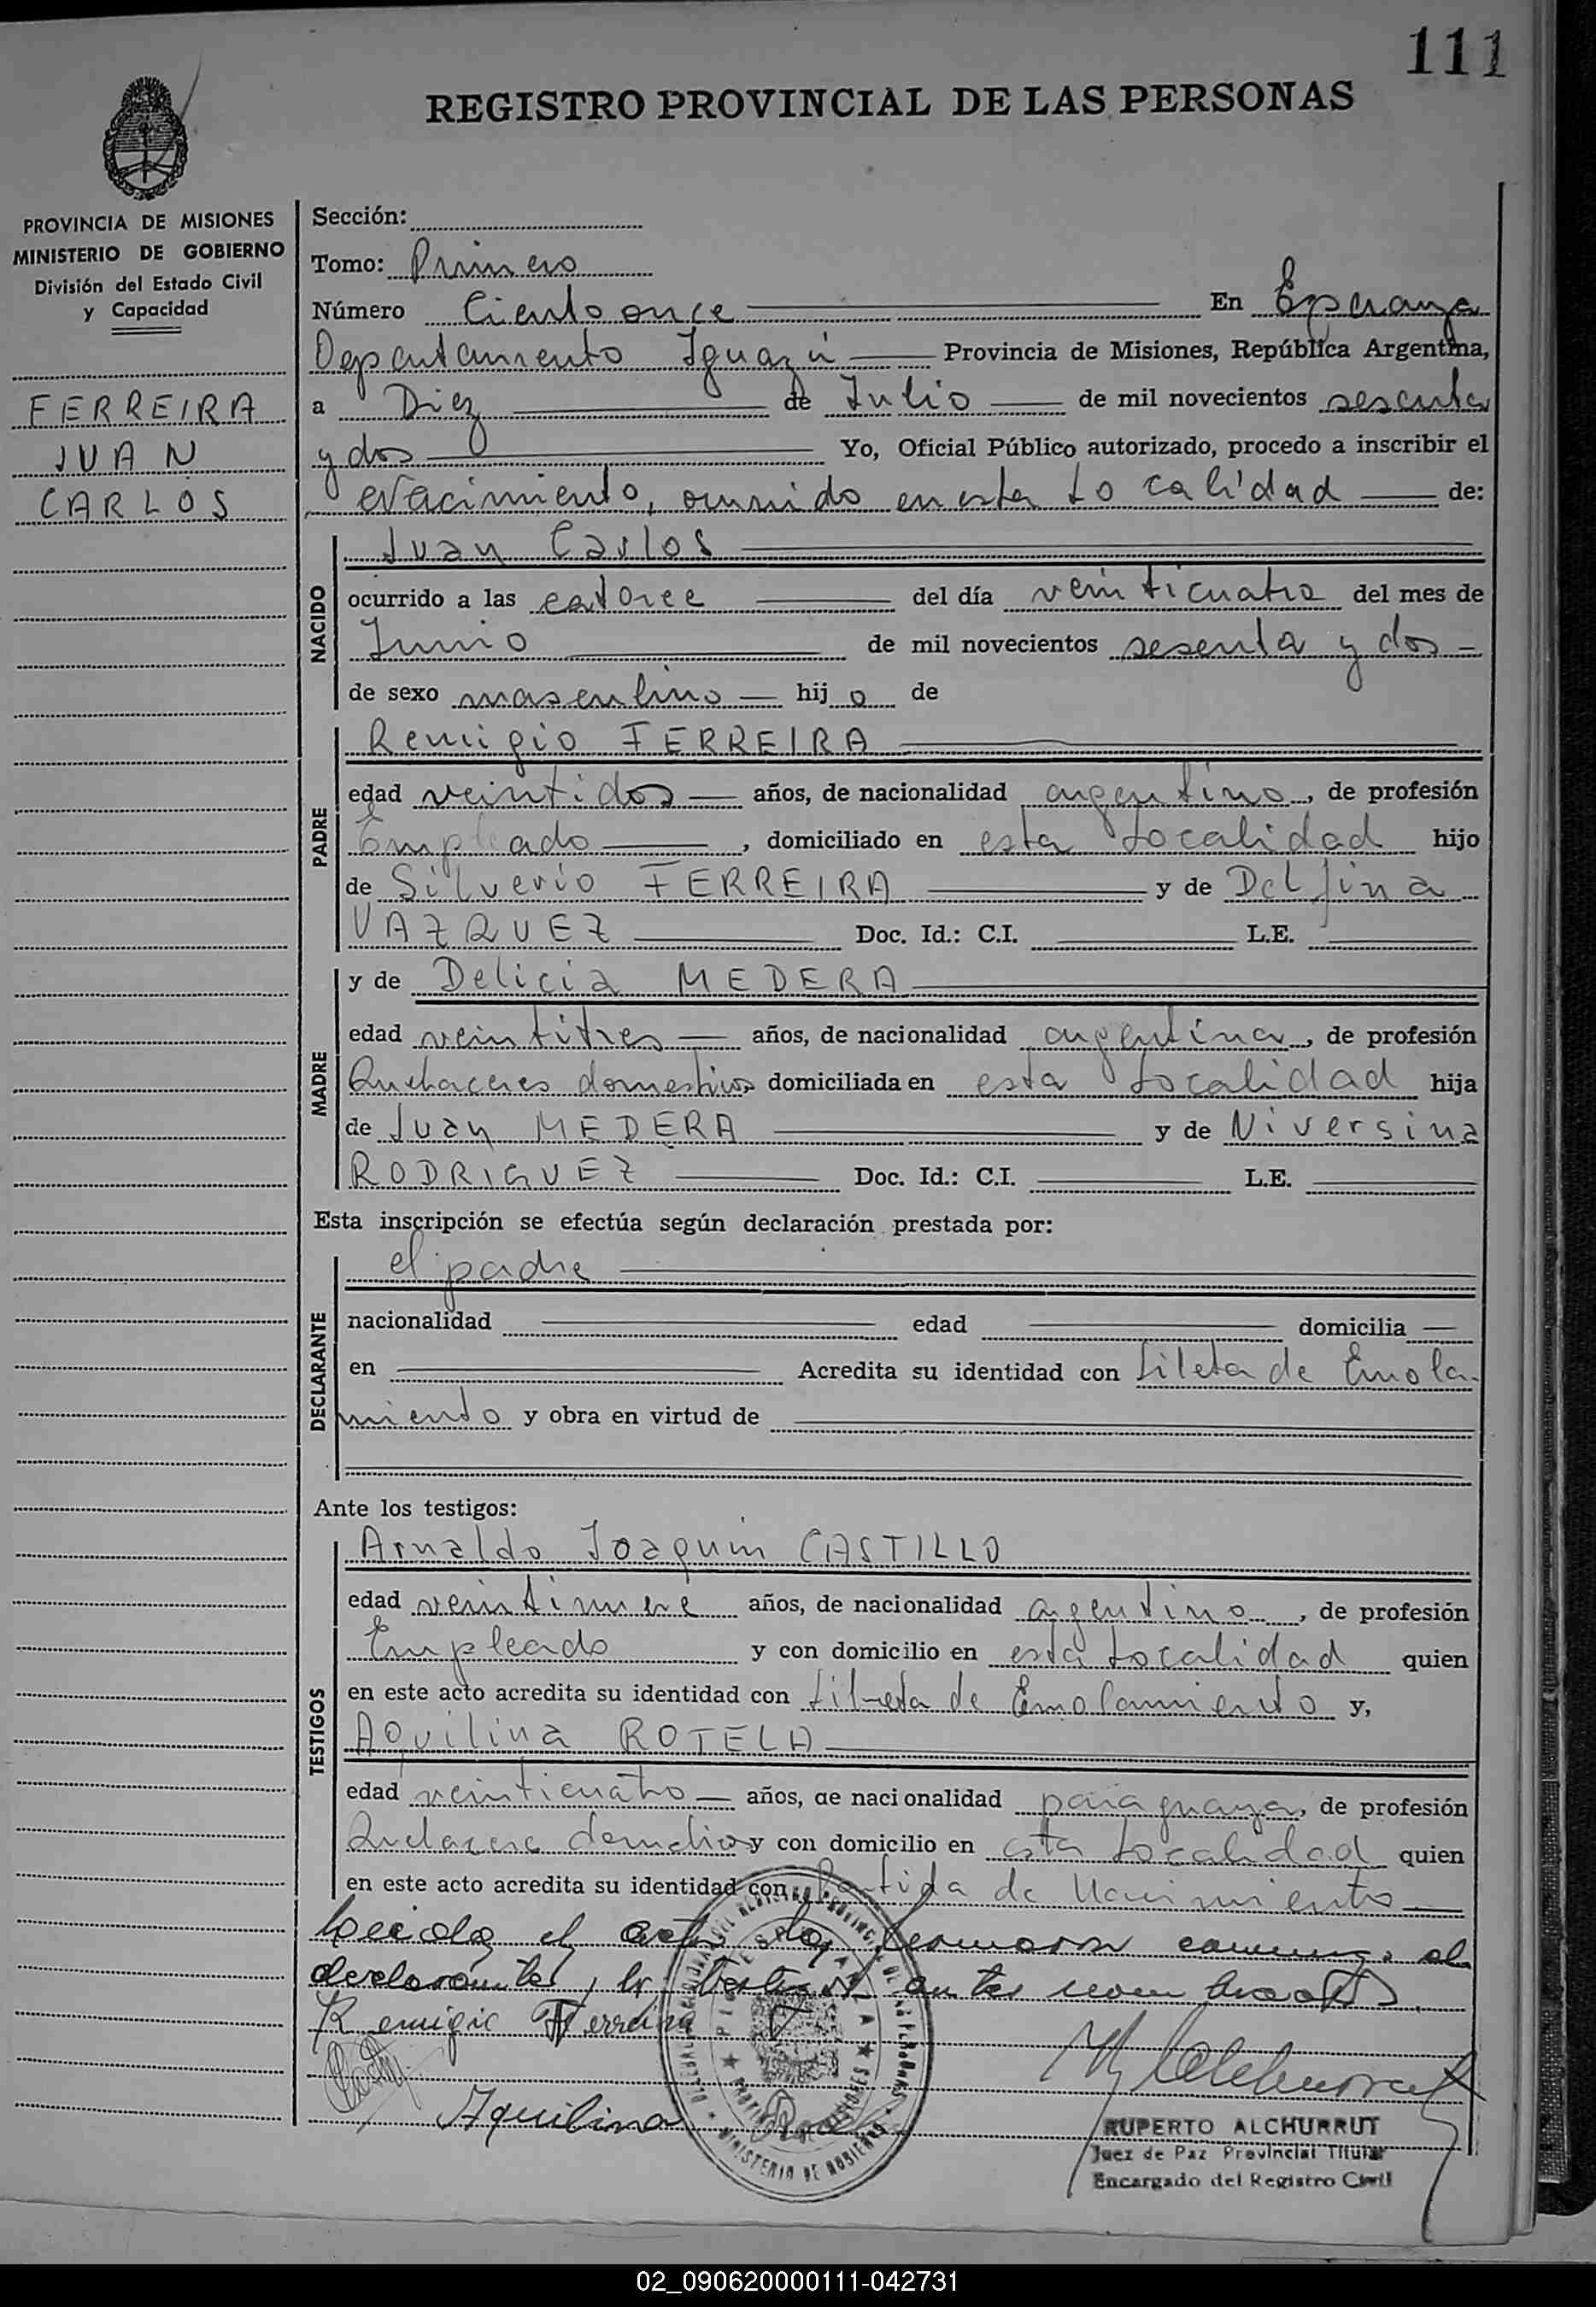 111
REGISTRO PROVINCIAL DE LAS PERSONAS
PROVINCIA DE MISIONES
MINISTERIO DE GOBIERNO
División del Estado Civil
y Capacidad
FERREIRA
JUAN
CARLOS
Sección:
Tomo: Primero
Número Ciento once En Esperanza
Departamento Iguazú Provincia de Misiones, República Argentina,
a Diez de Julio de mil novecientos sesenta
y dos Yo, Oficial Público autorizado, procedo a inscribir el
Nacimiento, ocurrido en esta Localidad de:
NACIDO
Juan Carlos
ocurrido a las catorce del día veinticuatro del mes de
Junio de mil novecientos sesenta y dos
de sexo masculino hijo de
PADRE
Remigio FERREIRA
edad veintidos años, de nacionalidad argentino, de profesión
Empleado, domiciliado en esta Localidad hijo
de Silverio FERREIRA y de Delfina
VAZQUEZ Doc. Id.: C.I. L.E.
MADRE
y de Delicia MEDERA
edad veintitres años, de nacionalidad argentina, de profesión
Quehaceres domesticos domiciliada en esta Localidad hija
de Juan MEDERA y de Niversina
RODRIGUEZ Doc. Id.: C.I. L.E.
Esta inscripción se efectúa según declaración prestada por:
DECLARANTE
el padre
nacionalidad edad domicilia
en Acredita su identidad con Libreta de Enrola-
miento y obra en virtud de
Ante los testigos:
TESTIGOS
Arnaldo Joaquin CASTILLO
edad veintinueve años, de nacionalidad argentino, de profesión
Empleado y con domicilio en esta Localidad quien
en este acto acredita su identidad con Libreta de Enrolamiento y,
Aquilina ROTELA
edad veinticuatro años, de nacionalidad paraguaya, de profesión
Quehaceres domesticos y con domicilio en esta Localidad quien
en este acto acredita su identidad con Partida de Nacimiento
Leida el acta, la firmaron conmigo el
declarante y los testigos antes nombrados.
Remigio Ferreira
Aquilina
RUPERTO ALCHURRUT
Juez de Paz Provincial Titular
Encargado del Registro Civil
02_090620000111-042731